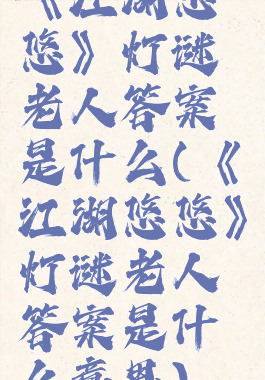 《江湖悠
悠》灯谜
老人答案
是什么(《
江湖悠悠》
灯谜老人
答案是什
么意思)